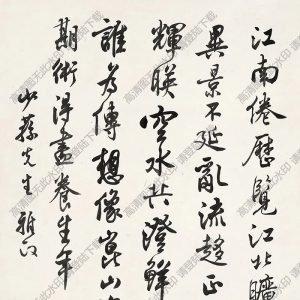 江南倦歷覽江北曠
異景不延亂流趨正
輝暎空水共澄鮮
誰為傳想像崑山
期術得盡養生年
少蓀先生雅政